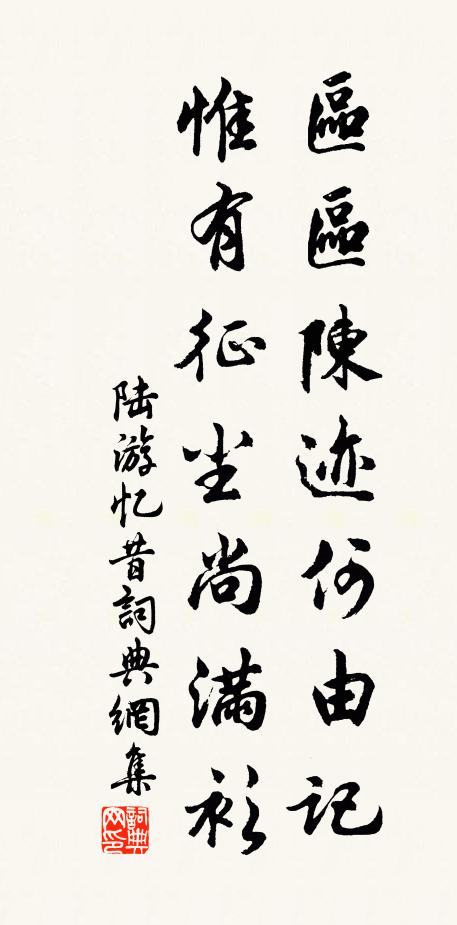 區區陳迹何由記
惟有征尘尚滿衫
陆游忆昔詞典網集
詞典网印